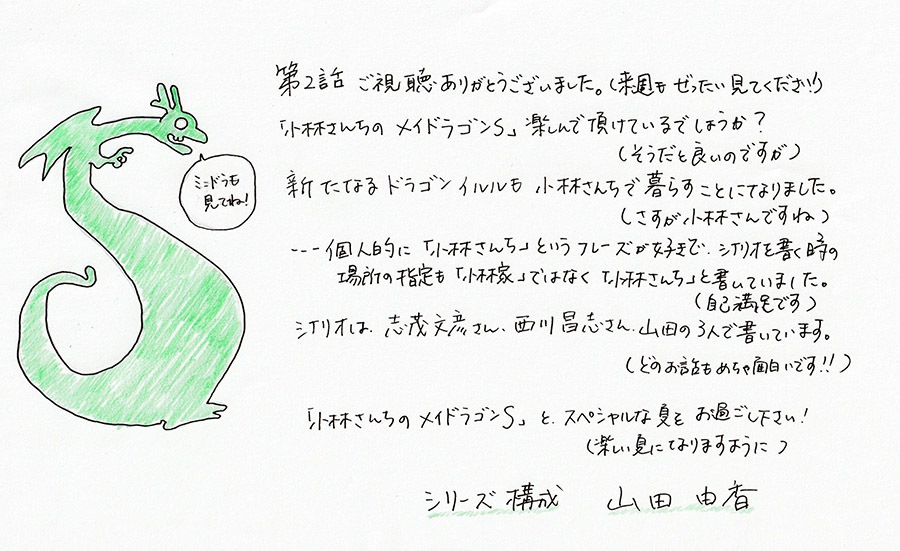 第2話 ご視聴ありがとうございました。(来週もぜったい見てください!)
「小林さんちの メイドラゴンS」楽しんで頂けているでしょうか?
(そうだと良いのですが)
ミニドラも
見てね!
新たなるドラゴン イルルも 小林さんちで暮らすことになりました。
(さすが小林さんですね)
---個人的に「小林さんち」というフレーズが好きで、シナリオを書く時の
場所の指定も「小林家」ではなく「小林さんち」と書いていました。
(自己満足です)
シナリオは、志茂文彦さん、西川昌志さん、山田の3人で書いています。
(どのお話もめちゃ面白いです!!)
「小林さんちの メイドラゴンS」と、スペシャルな夏をお過ごし下さい!
(楽しい夏になりますように)
シリーズ構成 山田 由香